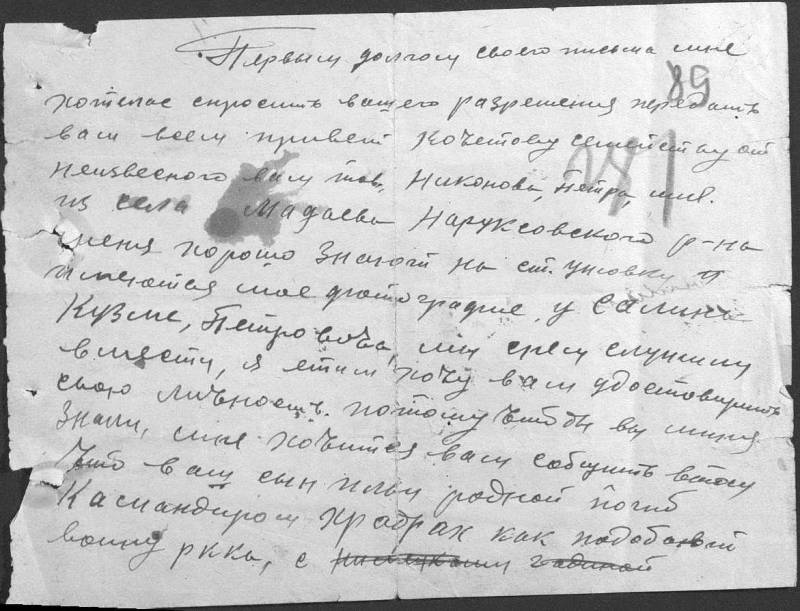 Первым долгом своего письма мне
89
хотелос спросить вашего разрешения передать
вам всем привет Кочетову семейству от
неизвесного вам тов. Никонова, Петра, мне.
из села Мадаева Наруксовского р-на
меня хорошо знают на ст.
имеются мое фотографие, у Салина
Кузме, Петровича, мы снем служили
вмести, я етим хочу вам удостоверить
свою личность. потому чтобы вы миня
знали, мне хочится вам собщить втом
что ваш сын родной погиб
Камандиром храбрах как подобаит
воину ркка, с